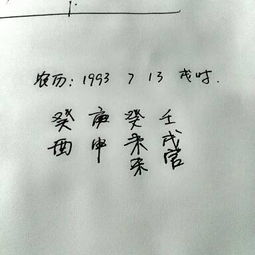 农历：1993 7 13 戌时.
癸 庚 癸 壬
酉 申 未 戌
来 宫